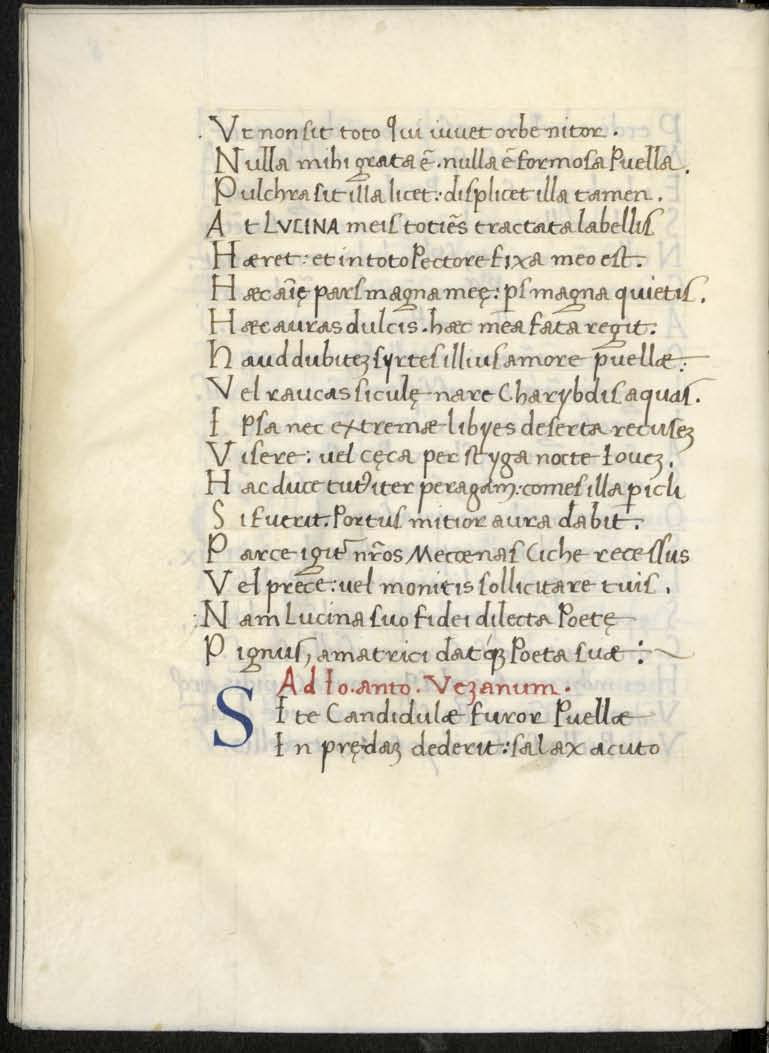 Vt non sit toto Qui iuuet orbe nitor.
Nulla mihi grata ẽ. nulla ẽ formosa Puella.
Pulchra sit illa licet: displicet illa tamen.
At LVCINA meis totiẽs tractata labellis
Hæret: et in toto Pectore fixa meo est.
Hæc aĩę pars magna meę: ps magna quietis.
Hæc auras dulcis. hæc mea fata regit.
Haud dubitez syrtes illius amore puellæ:
Vel raucas siculę nare Charybdis aquas.
Ipsa nec extremæ libyes deserta recusez
Visere: uel cęca per styga nocte Iouez.
Hac duce tut iter peragam: comes illa picli
Si fuerit. Portus mitior aura dabit.
Parce igit nr̃os Mecœnas Ciche recessus
Vel prece: uel monitis sollicitare tuis.
Nam Lucina suo fidei dilecta Poetę
Pignus, amatrici datq; Poeta suæ:~
Ad Io. anto. Vezanum.
SI te Candidulæ furor Puellæ
In prędaz dederit: salax acuto